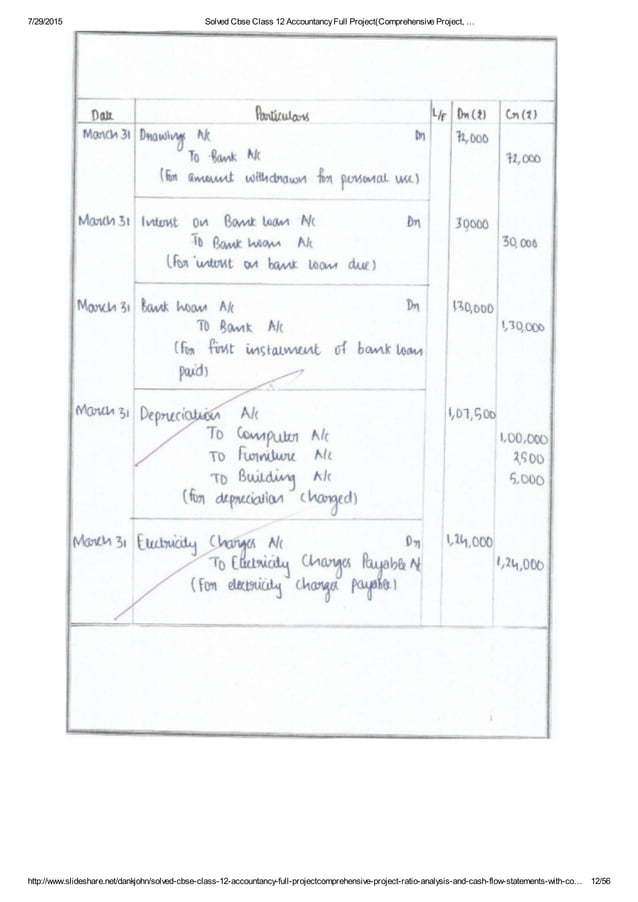 7/29/2015 Solved Cbse Class 12 Accountancy Full Project(Comprehensive Project, …
Date Particulars L/F Dr (₹) Cr (₹)
March 31 Drawings A/c Dr 72,000
To Bank A/c 72,000
(for amount withdrawn for personal use)
March 31 Interest on Bank loan A/c Dr 30000
To Bank loan A/c 30,000
(for interest on bank loan due)
March 31 Bank loan A/c Dr 130,000
To Bank A/c 1,30,000
(for first instalment of bank loan
paid)
March 31 Depreciation A/c 1,07,500
To Computer A/c 1,00,000
To Furniture A/c 2500
To Building A/c 5,000
(for depreciation charged)
March 31 Electricity Charges A/c Dr 1,24,000
To Electricity Charges Payable A/c 1,24,000
(for electricity charges payable)
http://www.slideshare.net/dankjohn/solved-cbse-class-12-accountancy-full-projectcomprehensive-project-ratio-analysis-and-cash-flow-statements-with-co… 12/56